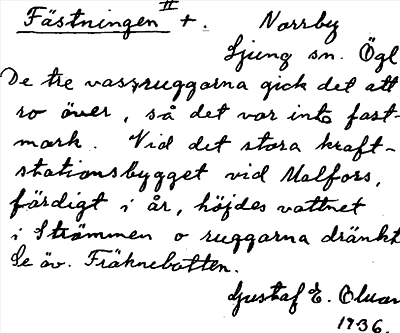 Fästningen II +. Norrby
Ljung sn. Ögl
De tre vassruggarna gick det att
ro över, så det var inte fast-
mark. Vid det stora kraft-
stationsbygget vid Malfors,
färdigt i år, höjdes vattnet
i Strömmen o ruggarna dränkt
Se äv. Fräknebotten.
Gustaf E.
1936.